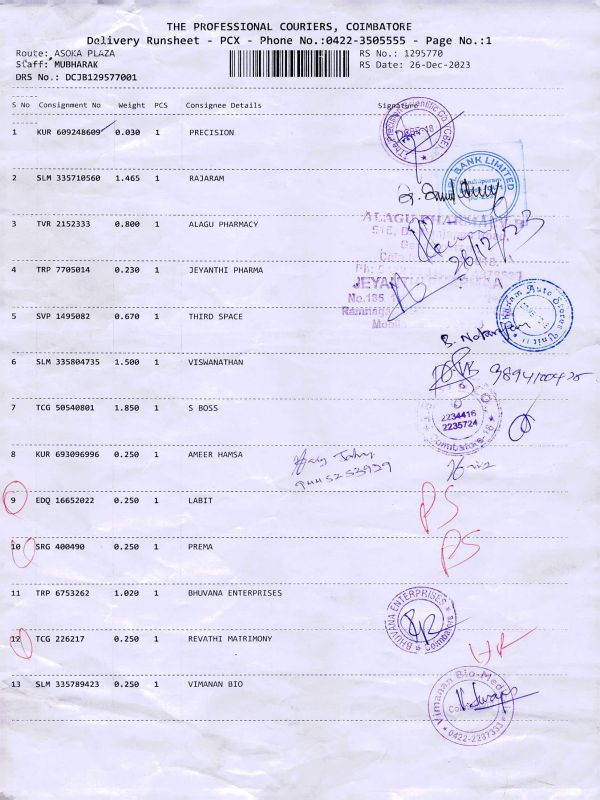 THE PROFESSIONAL COURIERS, COIMBATORE
Delivery Runsheet - PCX - Phone No.:0422-3505555 - Page No.:1
Route: ASOKA PLAZA
RS No.: 1295770
Staff: MUBHARAK
RS Date: 26-Dec-2023
DRS No.: DCJB129577001
S No Consignment No Weight PCS Consignee Details Signature
1 KUR 609248609 0.030 1 PRECISION
2 SLM 335710560 1.465 1 RAJARAM
BANK LIMITED
3 TVR 2152333 0.800 1 ALAGU PHARMACY
ALAGU PHARMA
26/12/23
4 TRP 7705014 0.230 1 JEYANTHI PHARMA
JEYANTHI
No.185
5 SVP 1495082 0.670 1 THIRD SPACE
6 SLM 335804735 1.500 1 VISWANATHAN
7 TCG 50540801 1.850 1 S BOSS
2234416
2235724
8 KUR 693096996 0.250 1 AMEER HAMSA
9 EDQ 16652022 0.250 1 LABIT
PS
10 SRG 400490 0.250 1 PREMA
PS
11 TRP 6753262 1.020 1 BHUVANA ENTERPRISES
BHUVANA ENTERPRISES
12 TCG 226217 0.250 1 REVATHI MATRIMONY
13 SLM 335789423 0.250 1 VIMANAN BIO
Vimanan Bio-Med
0422-2237333